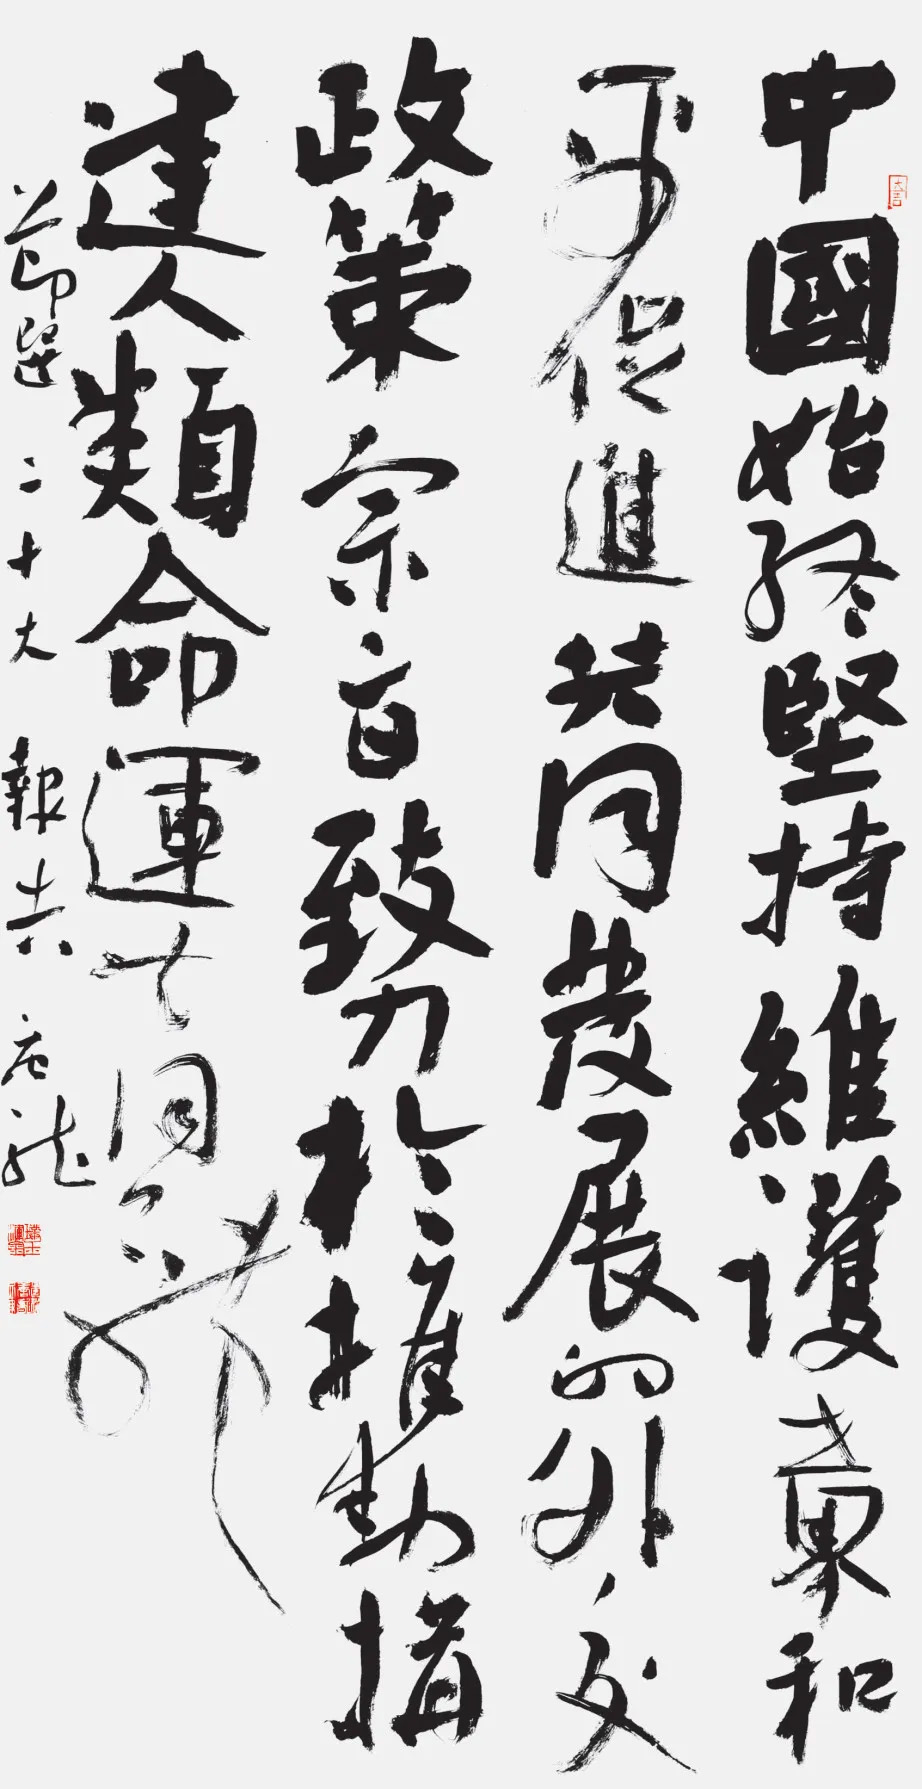 中國始終堅持維護世界和
平促進共同發展的外交
政策宗旨致力於推動構
建人類命運共同體
節選二十大報告